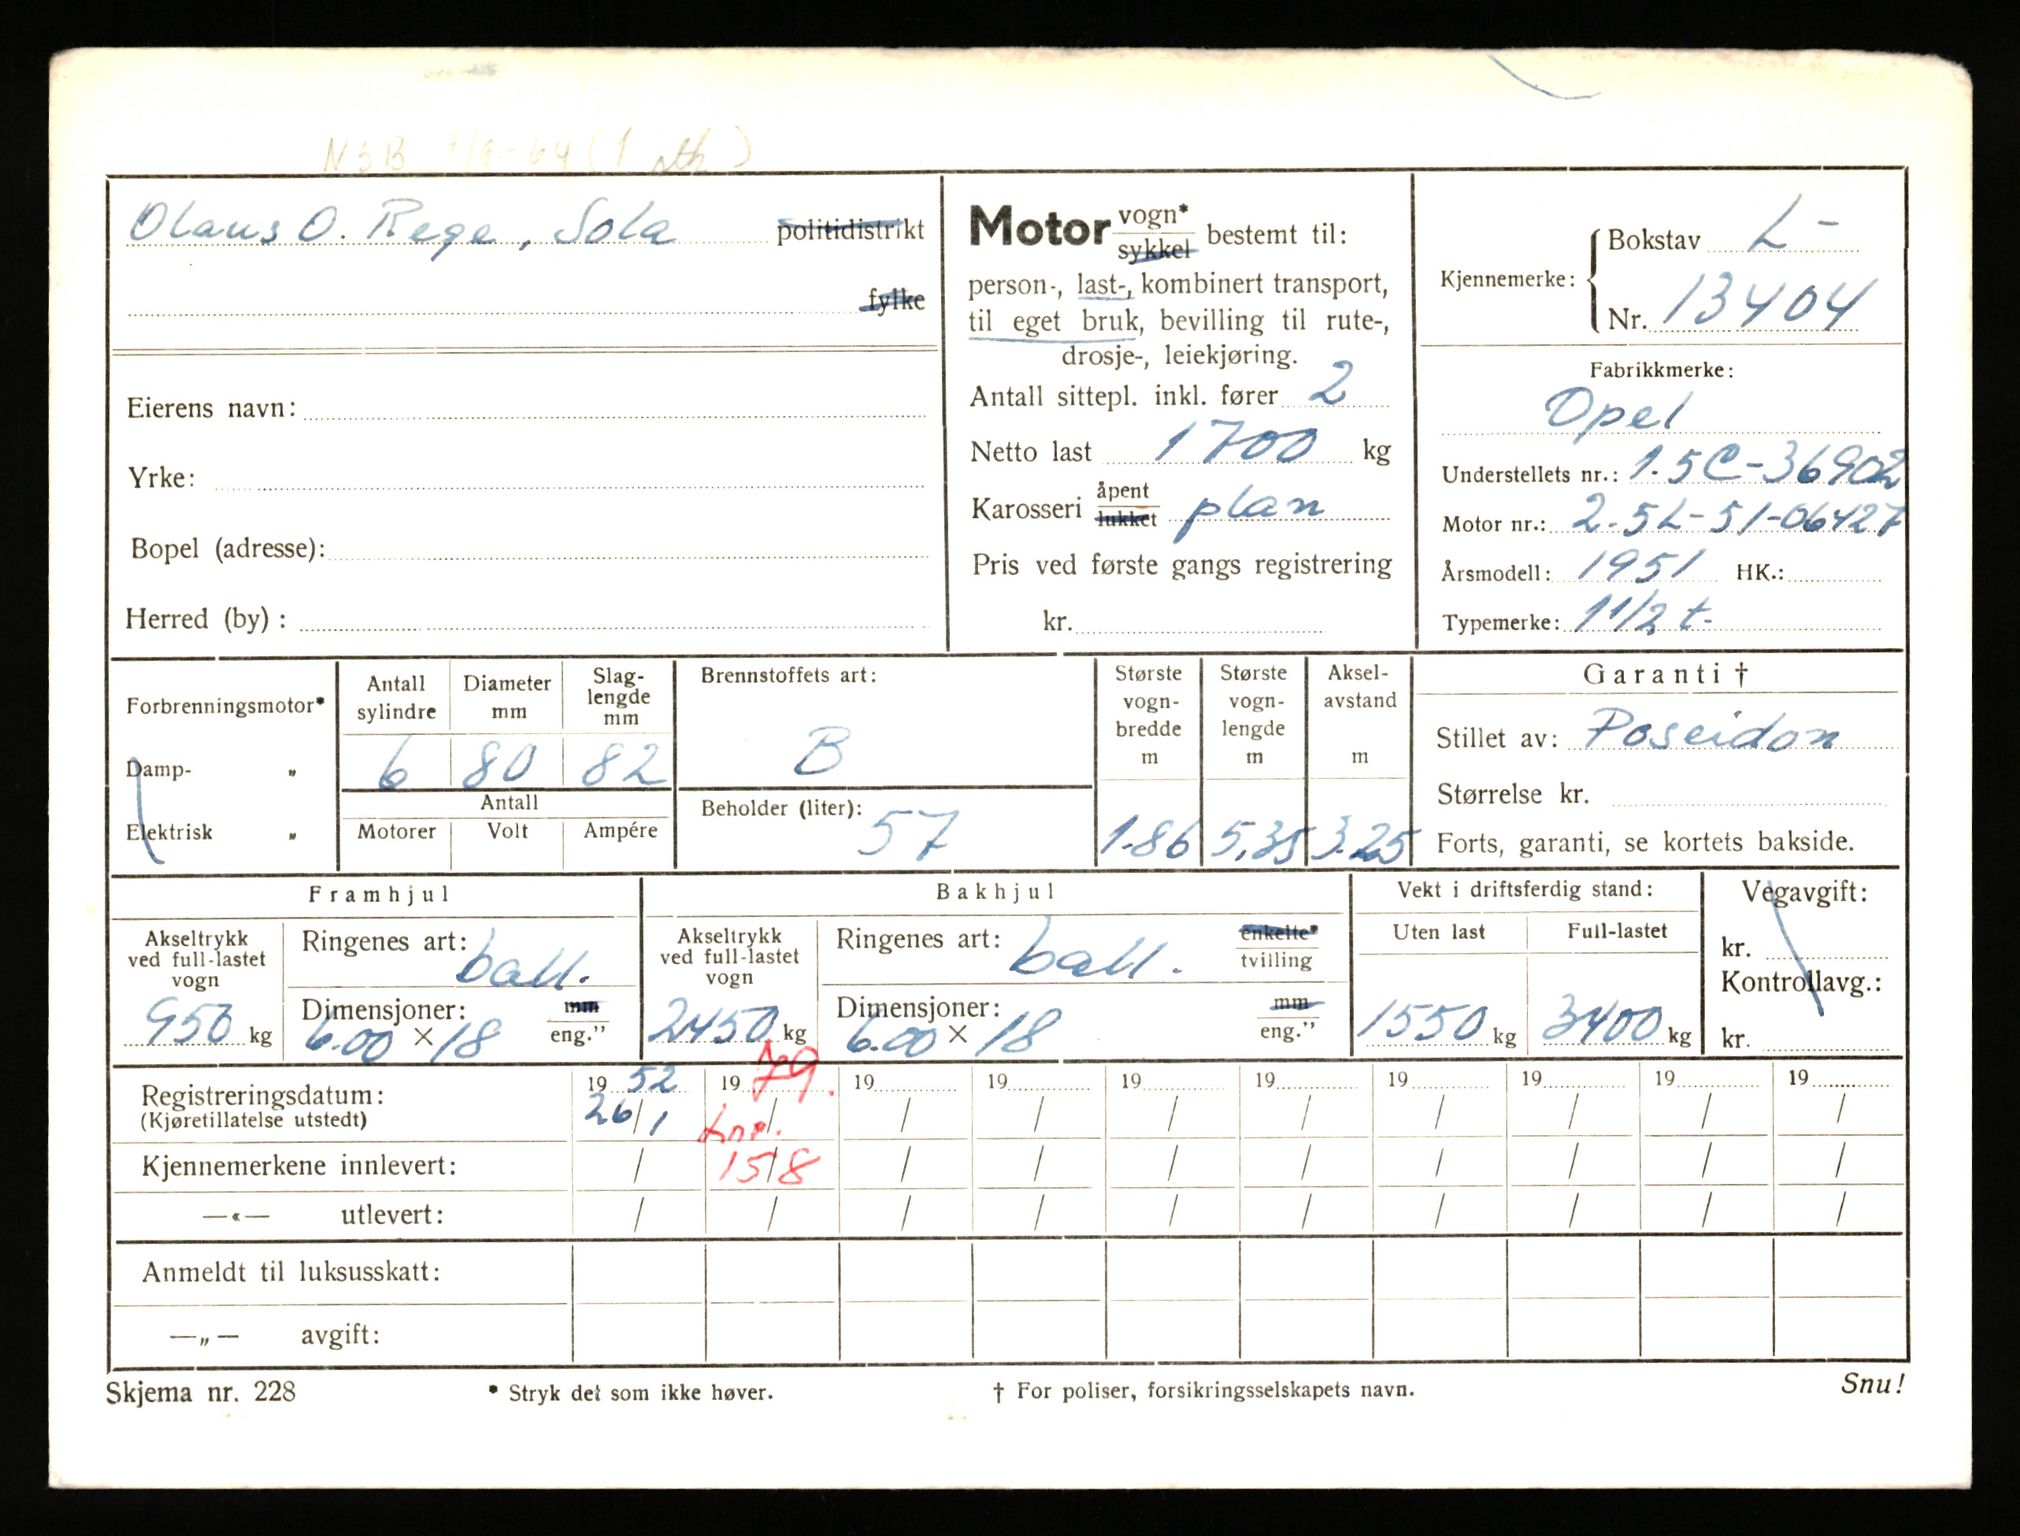 NSB 7/9-64 (1 stk)
Olaus O. Rege, Sola politidistrikt
fylke
Eierens navn:
Yrke:
Bopel (adresse):
Herred (by) :
Motor vogn* sykkel bestemt til:
person-, last-, kombinert transport,
til eget bruk, bevilling til rute-,
drosje-, leiekjøring.
Antall sittepl. inkl. fører 2
Netto last 1700 kg
Karosseri åpent lukket plan
Pris ved første gangs registrering
kr.
Kjennemerke: Bokstav L-
Nr. 13404
Fabrikkmerke:
Opel
Understellets nr.: 1.5C-36902
Motor nr.: 2.5L-51-06427
Årsmodell: 1951 HK.:
Typemerke: 1 1/2 t.
Forbrenningsmotor*
Damp- "
Elektrisk "
Antall sylindre 6
Diameter mm 80
Slag-lengde mm 82
Antall
Motorer Volt Ampére
Brennstoffets art:
B
Beholder (liter): 57
Største vogn-bredde m 1.86
Største vogn-lengde m 5,35
Aksel-avstand m 3.25
Garanti †
Stillet av: Poseidon
Størrelse kr.
Forts, garanti, se kortets bakside.
Framhjul
Akseltrykk ved full-lastet vogn 950 kg
Ringenes art: ball.
Dimensjoner: mm eng."
6.00 × 18
Bakhjul
Akseltrykk ved full-lastet vogn 2450 kg
Ringenes art: ball. enkelte* tvilling
Dimensjoner: mm eng."
6.00 × 18
Vekt i driftsferdig stand:
Uten last Full-lastet
1550 kg 3400 kg
Vegavgift:
kr.
Kontrollavg.:
kr.
Registreringsdatum: 19 52 19 79. 19 19 19 19 19 19 19 19
(Kjøretillatelse utstedt) 26/1 / / / / / / / / /
Kjennemerkene innlevert: / 15/8 / / / / / / / /
—«— utlevert: / / / / / / / / / /
Anmeldt til luksusskatt:
—„— avgift:
Skjema nr. 228 * Stryk det som ikke høver. † For poliser, forsikringsselskapets navn. Snu!